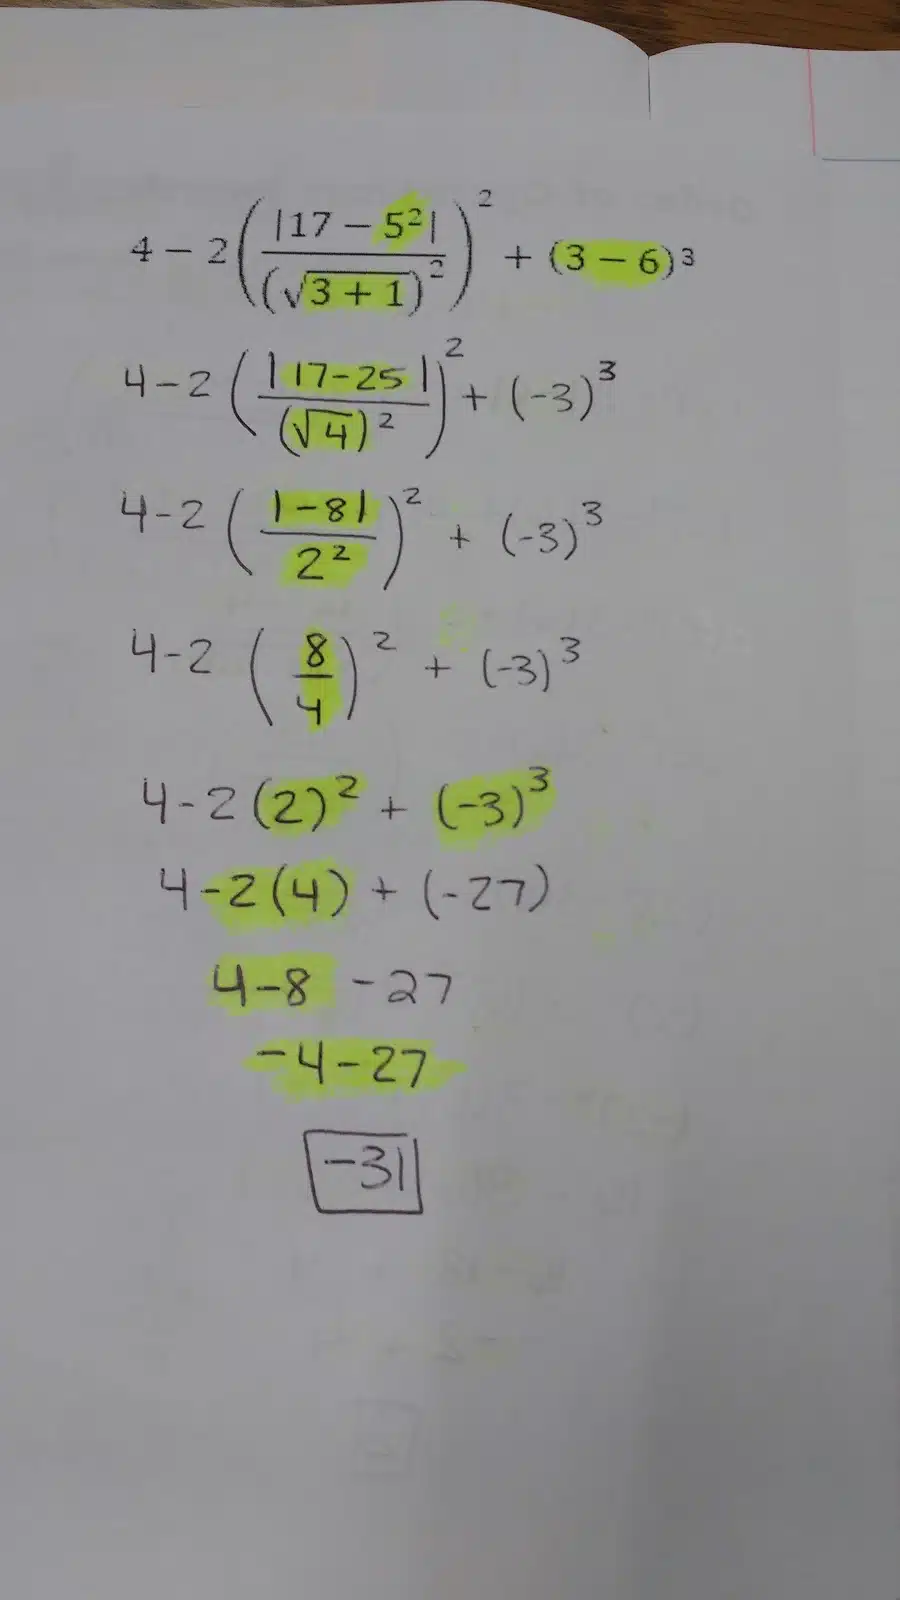 4 − 2(|17 − 5²| / (√(3 + 1))²)² + (3 − 6)³
4 - 2(|17 - 25| / (√4)²)² + (-3)³
4 - 2(|-8| / 2²)² + (-3)³
4 - 2(8/4)² + (-3)³
4 - 2(2)² + (-3)³
4 - 2(4) + (-27)
4 - 8 - 27
-4 - 27
-31